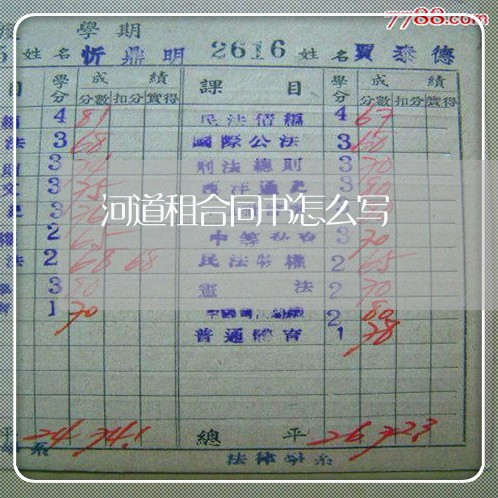 7788.com
學期
姓名忻鼎明 2616 姓名賈泰德
目 學分 成績 課目 學分 成績
分數 扣分 實得 分數 扣分 實得
4 81 民法債編 4 67
法 3 68 國際公法 3 60
3 刑法總則 3 70
3 75 西洋通史 3 80
河道租合同书怎么写
2 65 3 70
法 2 68 68 民法物權 2 65
3 80 憲法 2 70
1 70 2 80
普通體育 1 78
平 24 74.1 總平 26 72.3
系 法律學系